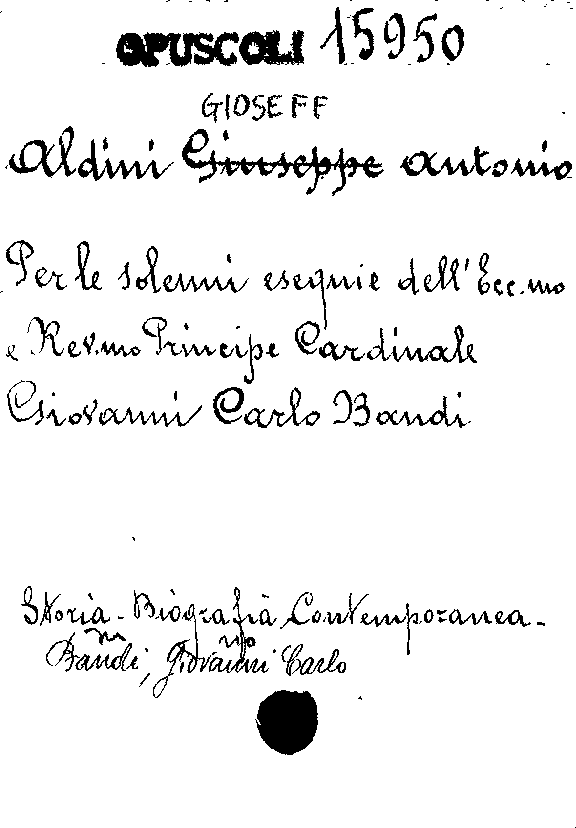 OPUSCOLI 15950
GIOSEFF
Aldini Giuseppe Antonio
Per le solenni esequie dell'Ecc.mo
e Rev.mo Principe Cardinale
Giovanni Carlo Bandi
Storia - Biografia Contemporanea -
Bandi, Giovanni Carlo